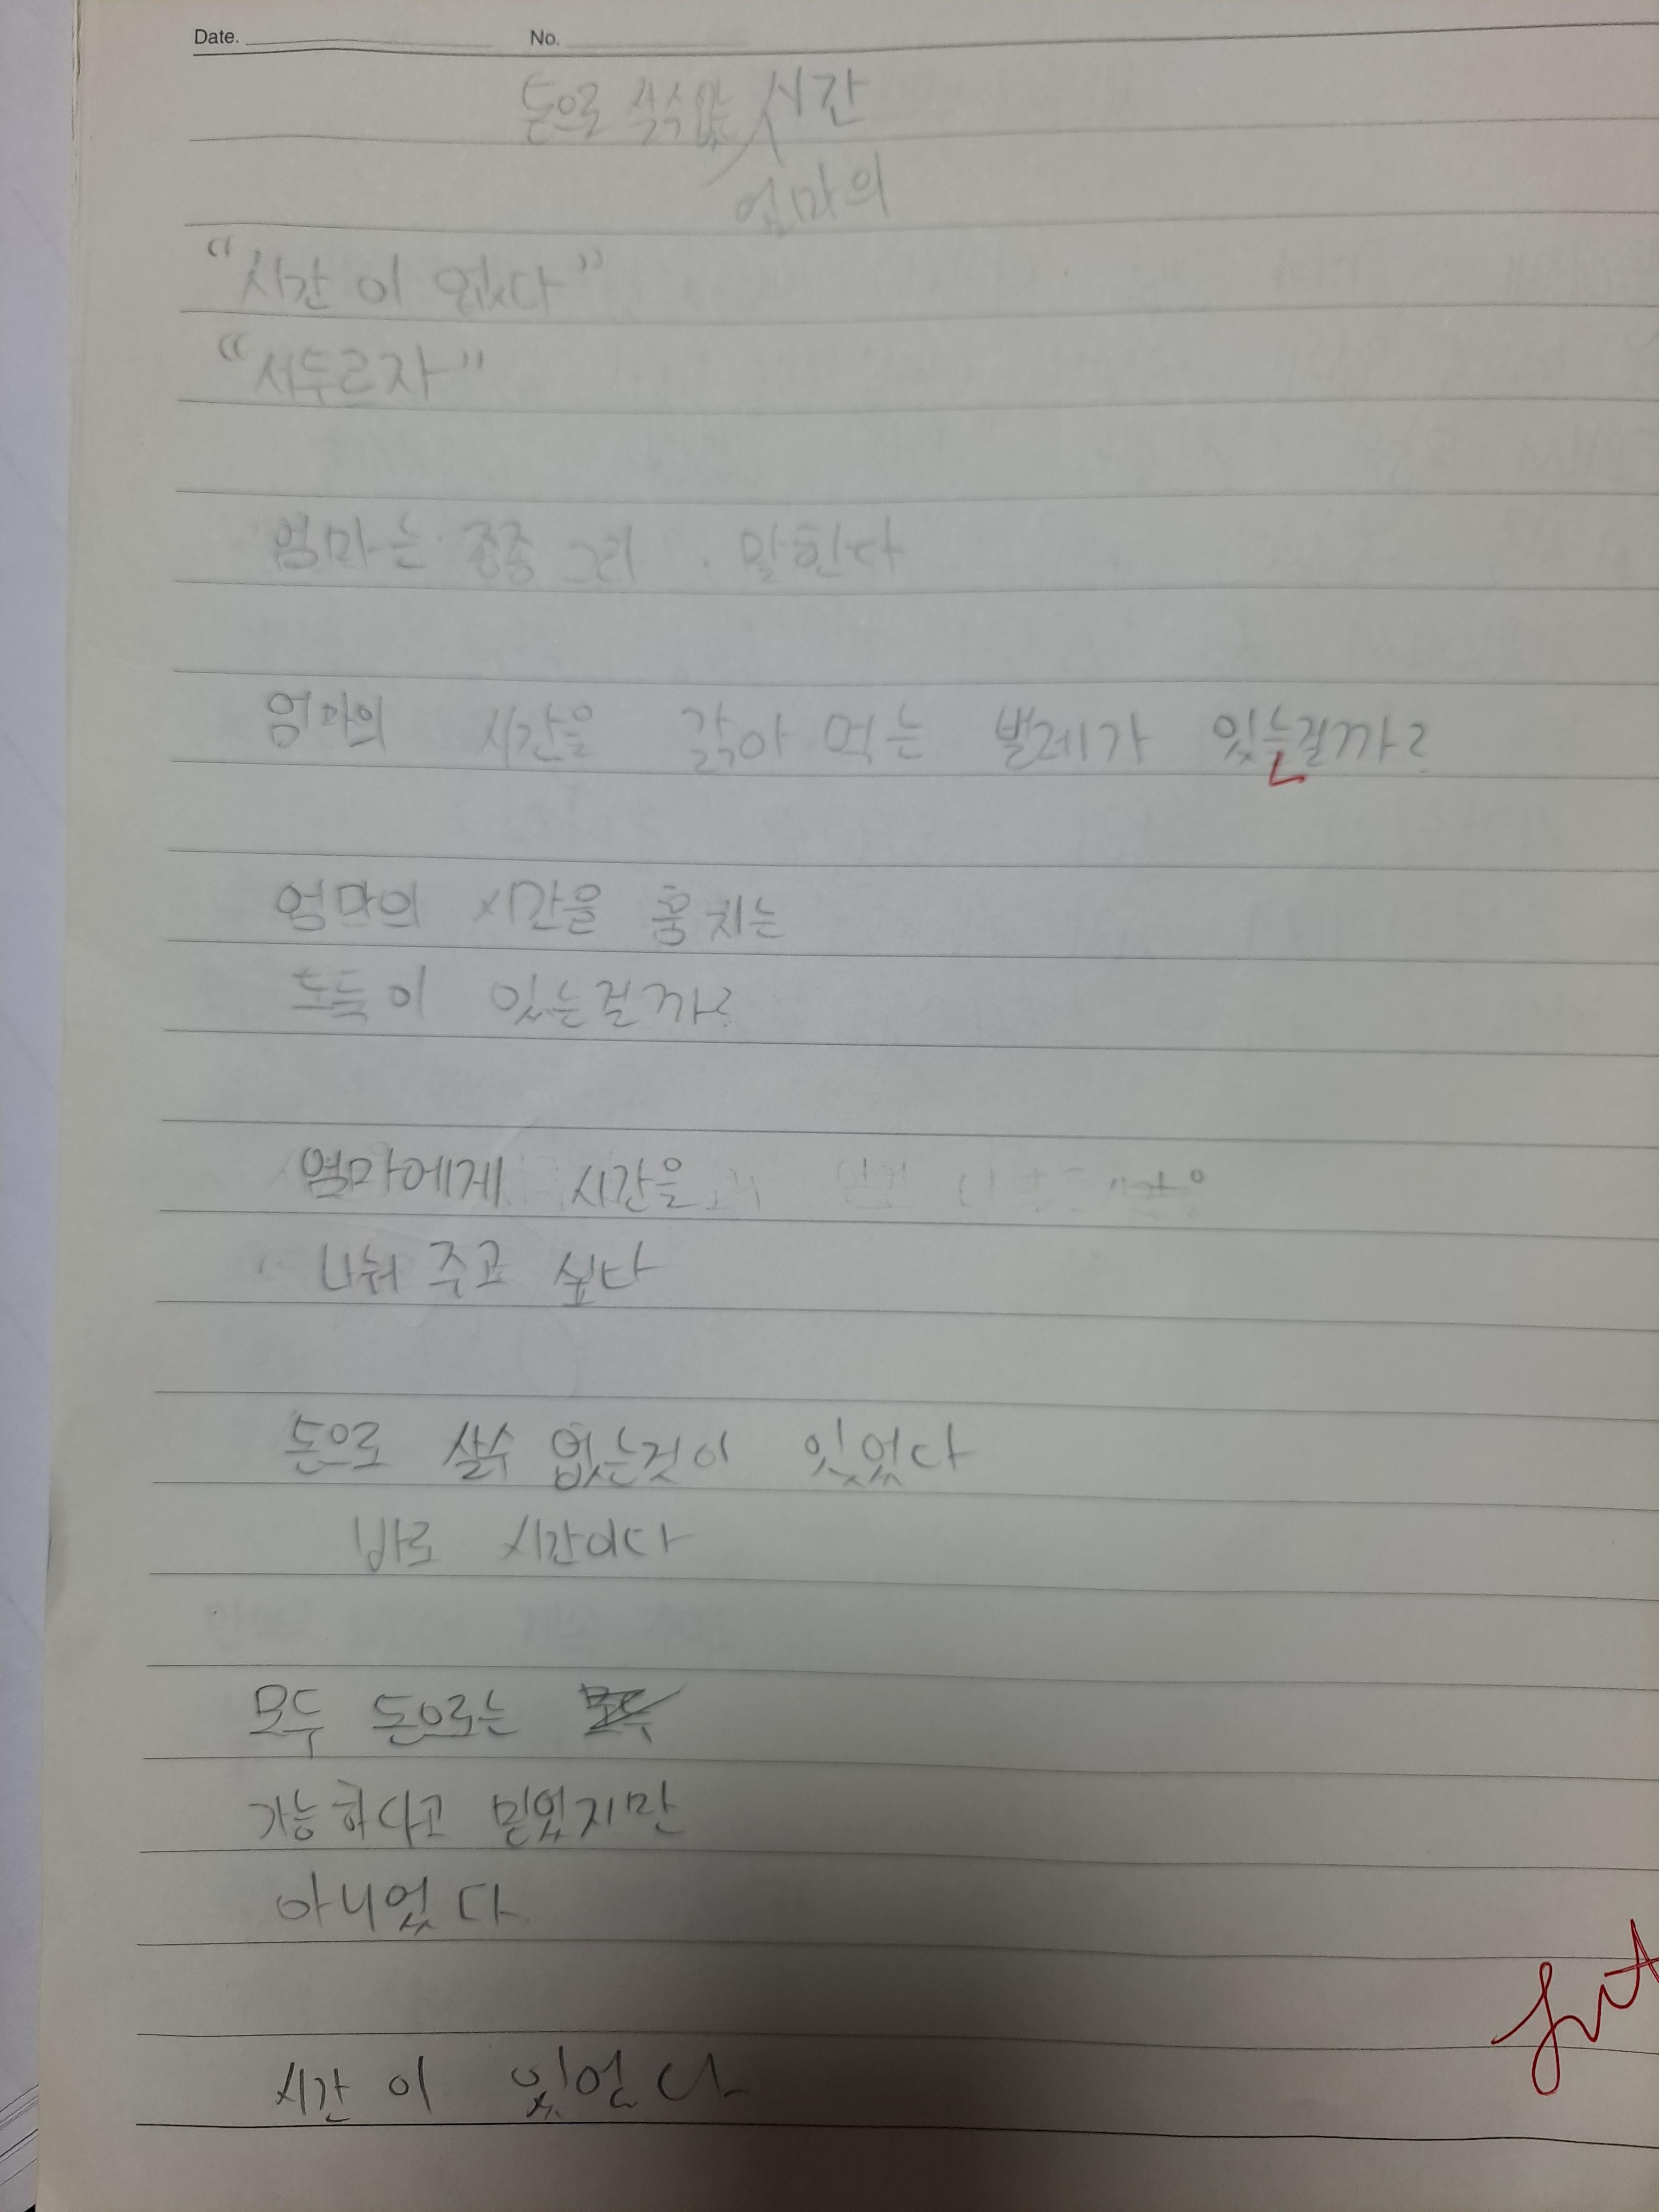 Date. No.
돈으로 살수없는 시간
엄마의
“시간이 없다”
“서두르자”
엄마는 종종 그리 말한다
엄마의 시간을 갉아 먹는 벌레가 있는걸까?
엄마의 시간을 훔치는
도둑이 있는걸까?
엄마에게 시간을
나눠 주고 싶다
돈으로 살수 없는것이 있었다
바로 시간이다
모두 돈으로는
가능하다고 믿었지만
아니었다
시간이 있었다